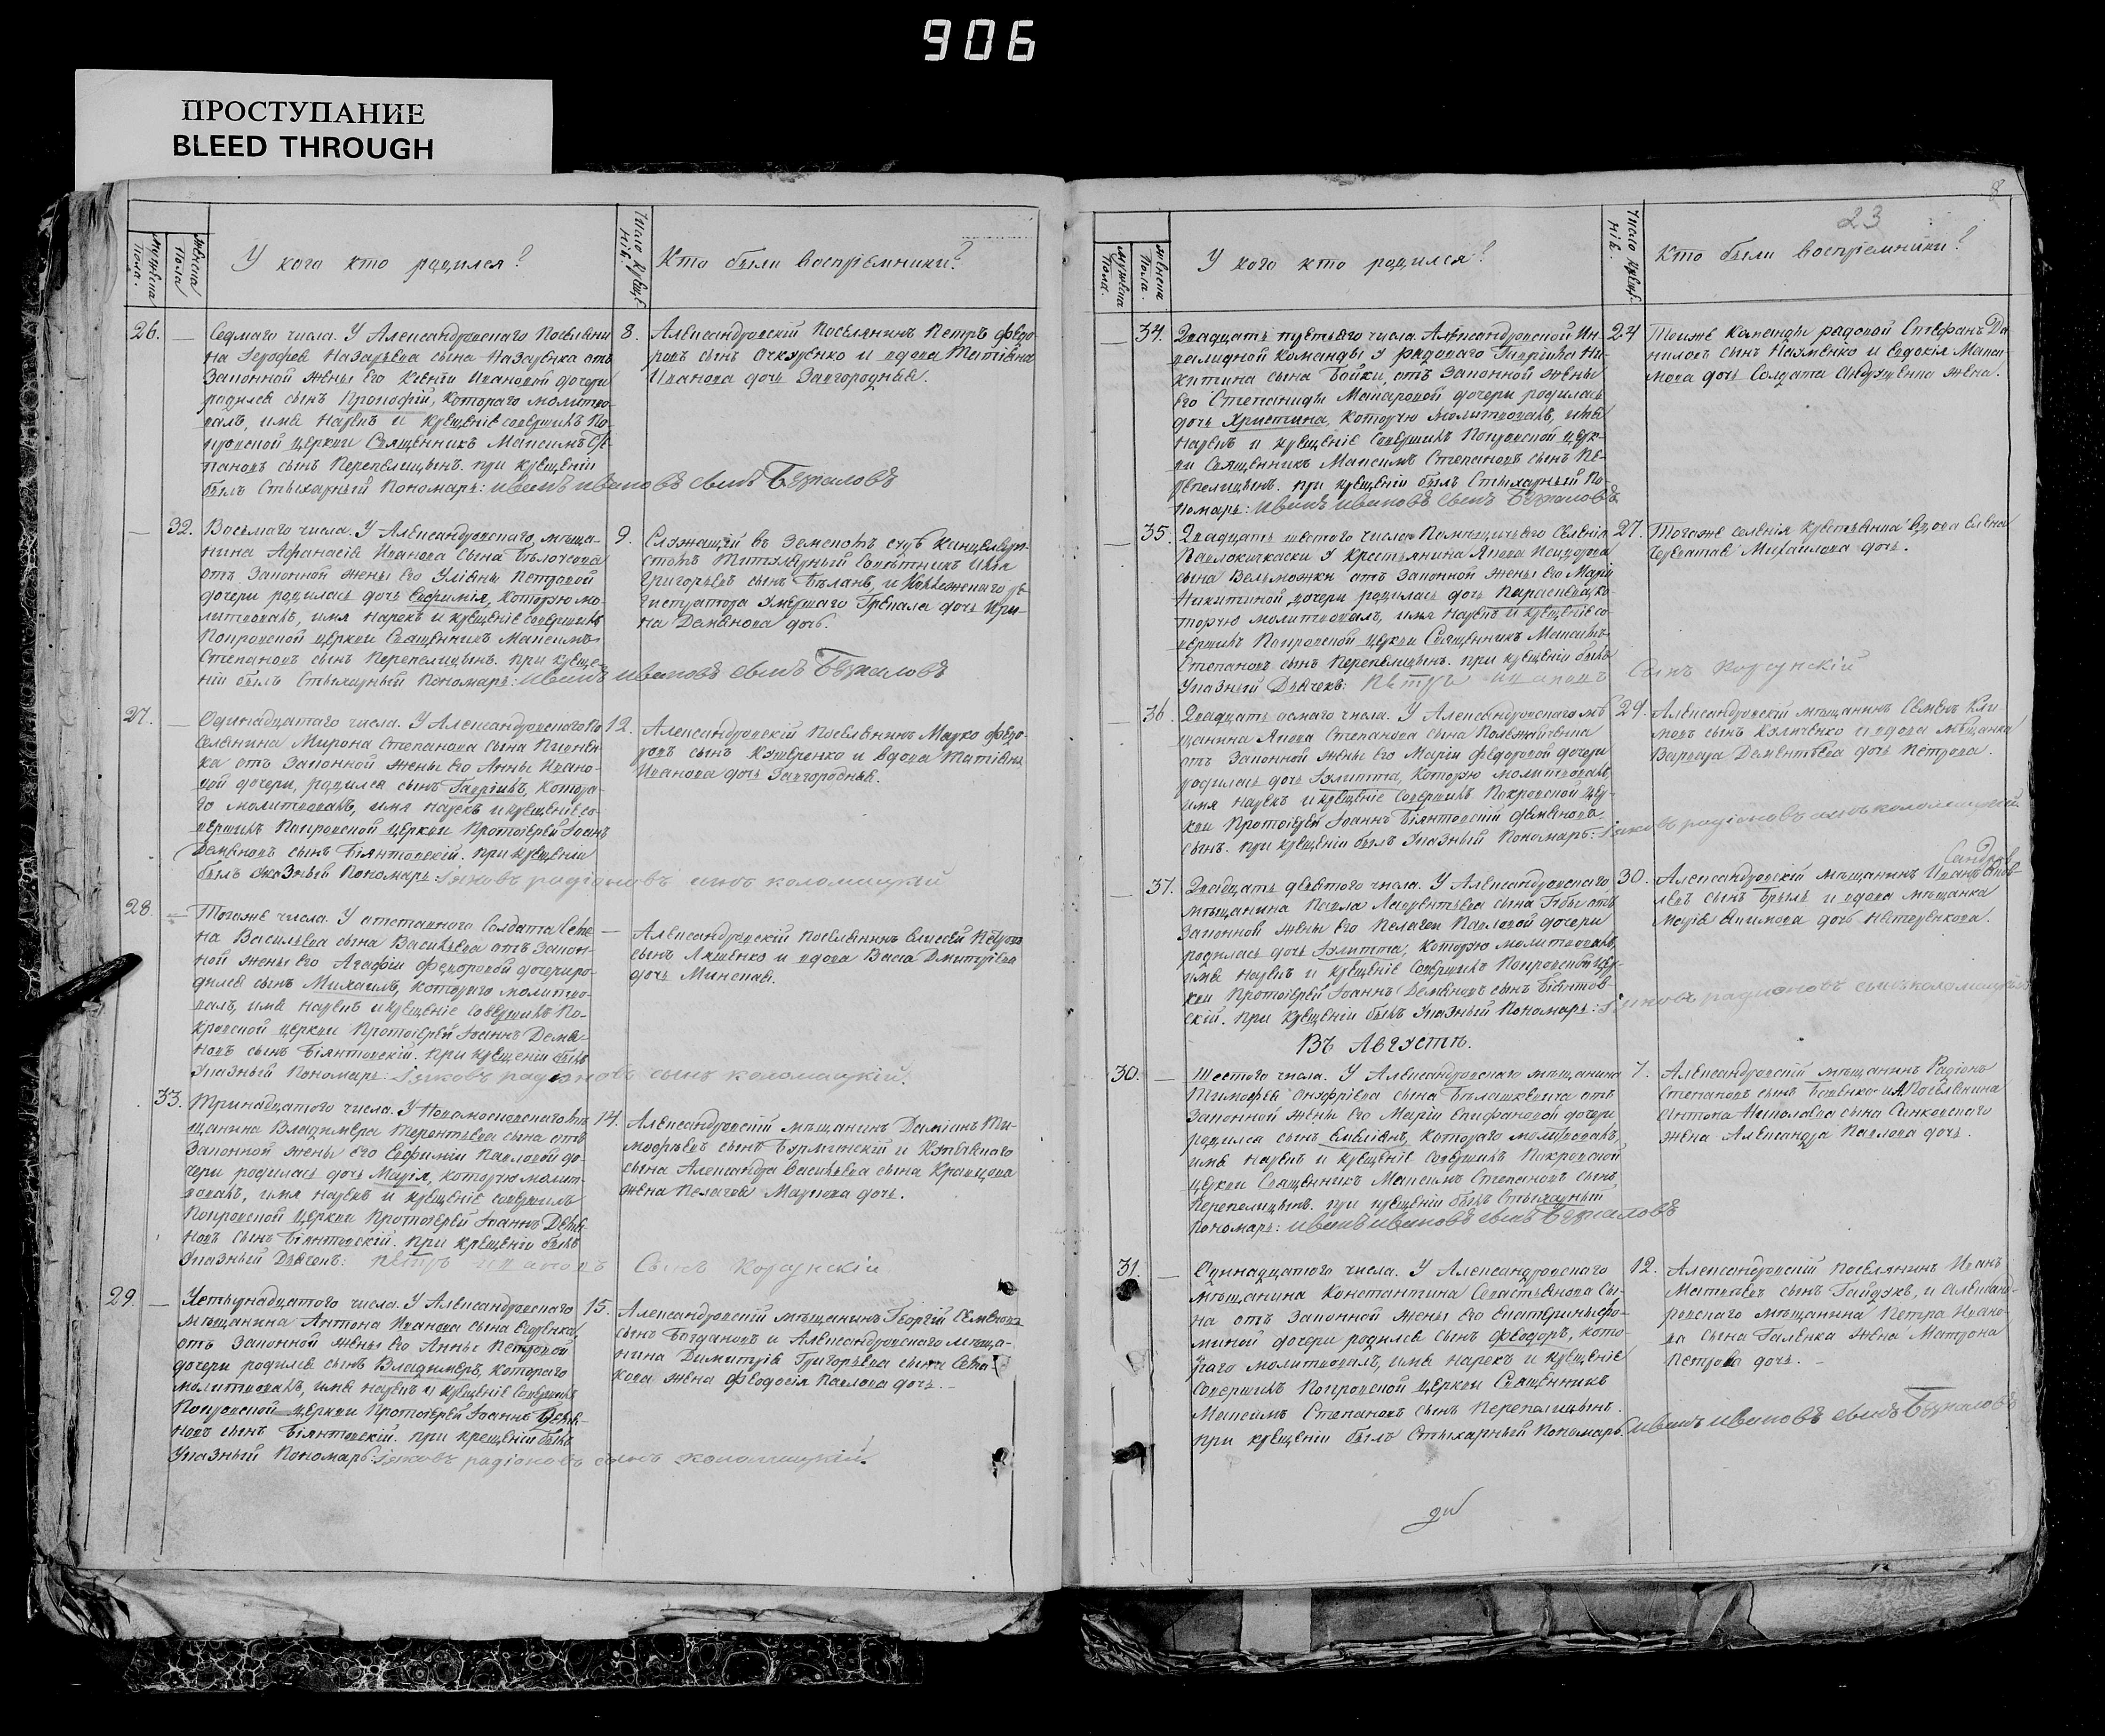 906
ПРОСТУПАНИЕ
BLEED THROUGH
мужеска пола.
женска пола
У кого кто родился?
Число крещенія.
Кто были воспріемники?
26. — Седмаго числа. У Александровскаго Поселяни-
на Іерофея Назарьева сына Назаренка отъ
Законной жены его Ксеніи Ивановой дочери
родился сынъ Прокофій, котораго молитво-
валъ, имя нарекъ и крещеніе совершилъ По-
кровской церкви Священникъ Максимъ Сте-
пановъ сынъ Перепелицынъ. при крещеніи
былъ Стыхарный Пономарь: Иванъ Ивановъ сынъ
8. Александровскій Поселянинъ Петръ Федо-
ровъ сынъ и вдова Татіяна
Иванова дочь Завгородняя.
— 32. Восьмаго числа. У Александровскаго мѣща-
нина Афанасія Иванова сына
отъ Законной жены его Уліяны Петровой
дочери родилась дочь Евфимія, которую мо-
литвовалъ, имя нарекъ и крещеніе совершилъ
Покровской церкви Священникъ Максимъ
Степановъ сынъ Перепелицынъ. при креще-
ніи былъ Стыхарный Пономарь: Иванъ Ивановъ сынъ
9. Служащій въ Земскомъ судѣ Канцеляри-
стомъ Титулярный Совѣтникъ Илья
Григорьевъ сынъ и Коллежскаго ре-
гистратора умершаго дочь Ири-
на дочь.
27. — Одинадцатаго числа. У Александровскаго По-
селянина Мирона Степанова сына
отъ Законной жены его Анны Ивано-
вой дочери, родился сынъ Гавріилъ, котора-
го молитвовалъ, имя нарекъ и крещеніе со-
вершилъ Покровской церкви Протоіерей Іоаннъ
сынъ Біянтовскій. при крещеніи
былъ указный Пономарь: Іяковъ радіоновъ сынъ коломыцкій
12. Александровскій Поселянинъ Марко Федо-
ровъ сынъ Кушверенко и вдова Татіяна
Иванова дочь Завгородняя.
28. — Тогоже числа. У отставнаго Солдата
на Васильева сына Васильева отъ Закон-
ной жены его Агафіи Федоровой дочери ро-
дился сынъ Михаилъ, котораго молитво-
валъ, имя нарекъ и крещеніе совершилъ По-
кровской церкви Протоіерей Іоаннъ
сынъ Біянтовскій. при крещеніи былъ
Указный Пономарь: Іяковъ радіоновъ сынъ коломыцкій.
— Александровскій Поселянинъ Елисей Петровъ
сынъ Ляшенко и вдова Васса Дмитріева
дочь
33. Тринадцатого числа. У Новомосковскаго мѣ-
щанина Владимера Терентьева сына отъ
Законной жены его Евфиміи Павловой до-
чери родилась дочь Марія, которую молит-
вовалъ, имя нарекъ и крещеніе совершилъ
Покровской церкви Протоіерей Іоаннъ
сынъ Біянтовскій. при крещеніи былъ
Указный Дьячекъ: Петръ Ивановъ Сынъ Корсунскій
14. Александровскій мѣщанинъ Даміанъ Ти-
мофѣевъ сынъ и
сына Александра Васильева сына Кравцова
жена Пелагея Маркова дочь.
29. — Четырнадцатаго числа. У Александровскаго
мѣщанина Антона Иванова сына
отъ Законной жены его Анны Петровой
дочери родился сынъ Владимеръ, котораго
молитвовалъ, имя нарекъ и крещеніе совершилъ
Покровской церкви Протоіерей Іоаннъ
сынъ Біянтовскій. при крещеніи былъ
Указный Пономарь: Іяковъ радіоновъ сынъ коломыцкій.
15. Александровскій мѣщанинъ Георгій Семеновъ
сынъ Богдановъ и Александровскаго мѣща-
нина Димитрія Григорьева сына
жена Феодосія Павлова дочь.
8
23
мужеска пола.
женска пола.
У кого кто родился?
Число крещенія.
Кто были воспріемники?
— 34. Двадцать третьяго числа. Александровской Ин-
валидной Команды у рядоваго Гавріила Ни-
китина сына Бойки, отъ Законной жены
его Степаниды Макаровой дочери родилась
дочь Христина, которую молитвовалъ, имя
нарекъ и крещеніе совершилъ Покровской церк-
ви Священникъ Максимъ Степановъ сынъ Пе-
репелицынъ. при крещеніи былъ Стыхарный По-
номарь: Иванъ Ивановъ сынъ
24 Тойже команды рядовой Стефанъ Да-
ниловъ сынъ и Евдокія Макси-
мова дочь Солдата жена.
— 35. Двадцать шестого числа. Помѣщичьего Селенія
Павлокичкаски у Крестьянина Якова
сына Вельможки отъ Законной жены его Маріи
Никитиной дочери родилась дочь Параскева, ко-
торую молитвовалъ, имя нарекъ и крещеніе со-
вершилъ Покровской церкви Священникъ Максимъ
Степановъ сынъ Перепелицынъ. при крещеніи былъ
Указный Дьячекъ: Петръ Ивановъ Сынъ Корсунскій
27. Тогоже селенія Крестьянка Вдова Елена
Михайлова дочь.
— 36. Двадцать осмаго числа. У Александровскаго мѣ-
щанина Якова Степанова сына
отъ Законной жены его Маріи Федоровой дочери
родилась дочь Іулитта, которую молитвовалъ,
имя нарекъ и крещеніе совершилъ Покровской цер-
кви Протоіерей Іоаннъ Біянтовскій
сынъ. при крещеніи былъ Указный Пономарь: Іяковъ радіоновъ сынъ коломыцкій
29. Александровскій мѣщанинъ Семенъ Кли-
мовъ сынъ Куличенко и вдова мѣщанка
Варвара Дементьева дочь Петрова.
— 37. Двадцать девятого числа. У Александровскаго
мѣщанина Павла Лаврентьева сына Гибы отъ
Законной жены его Пелагеи Павловой дочери
родилась дочь Іулитта, которую молитвовалъ,
имя нарекъ и крещеніе совершилъ Покровской цер-
кви Протоіерей Іоаннъ сынъ Біянтов-
скій. При крещеніи былъ Указный Пономарь: Іяковъ радіоновъ сынъ коломыцкій
30. Александровскій мѣщанинъ
сынъ Брыль и вдова мѣщанка
Марія Акимова дочь Нестеренкова.
Въ Августѣ.
30. — Шестого числа. У Александровскаго мѣщанина
Тимофея Онуфріева сына отъ
Законной жены его Маріи Епифановой дочери
родился сынъ Емеліянъ, котораго молитвовалъ,
имя нарекъ и крещеніе совершилъ Покровской
церкви Священникъ Максимъ Степановъ сынъ
Перепелицынъ. при крещеніи былъ Стыхарный
Пономарь: Иванъ Ивановъ сынъ
7. Александровскій мѣщанинъ Радіонъ
Степановъ сынъ и Поселянина
Антона Николаева сына
жена Александра Павлова дочь.
31. — Одиннадцатого числа. У Александровскаго
мѣщанина Константина Севастьянова сы-
на отъ Законной жены его Екатерины Фо-
миной дочери родился сынъ Феодоръ, кото-
раго молитвовалъ, имя нарекъ и крещеніе
совершилъ Покровской церкви Священникъ
Максимъ Степановъ сынъ Перепелицынъ.
при крещеніи былъ Стыхарный Пономарь: Иванъ Ивановъ сынъ
12. Александровскій Поселянинъ Иванъ
Матвѣевъ сынъ Гайдукъ, и Александ-
ровскаго мѣщанина Петра Ивано-
ва сына Галенка жена Матрона
Петрова дочь.